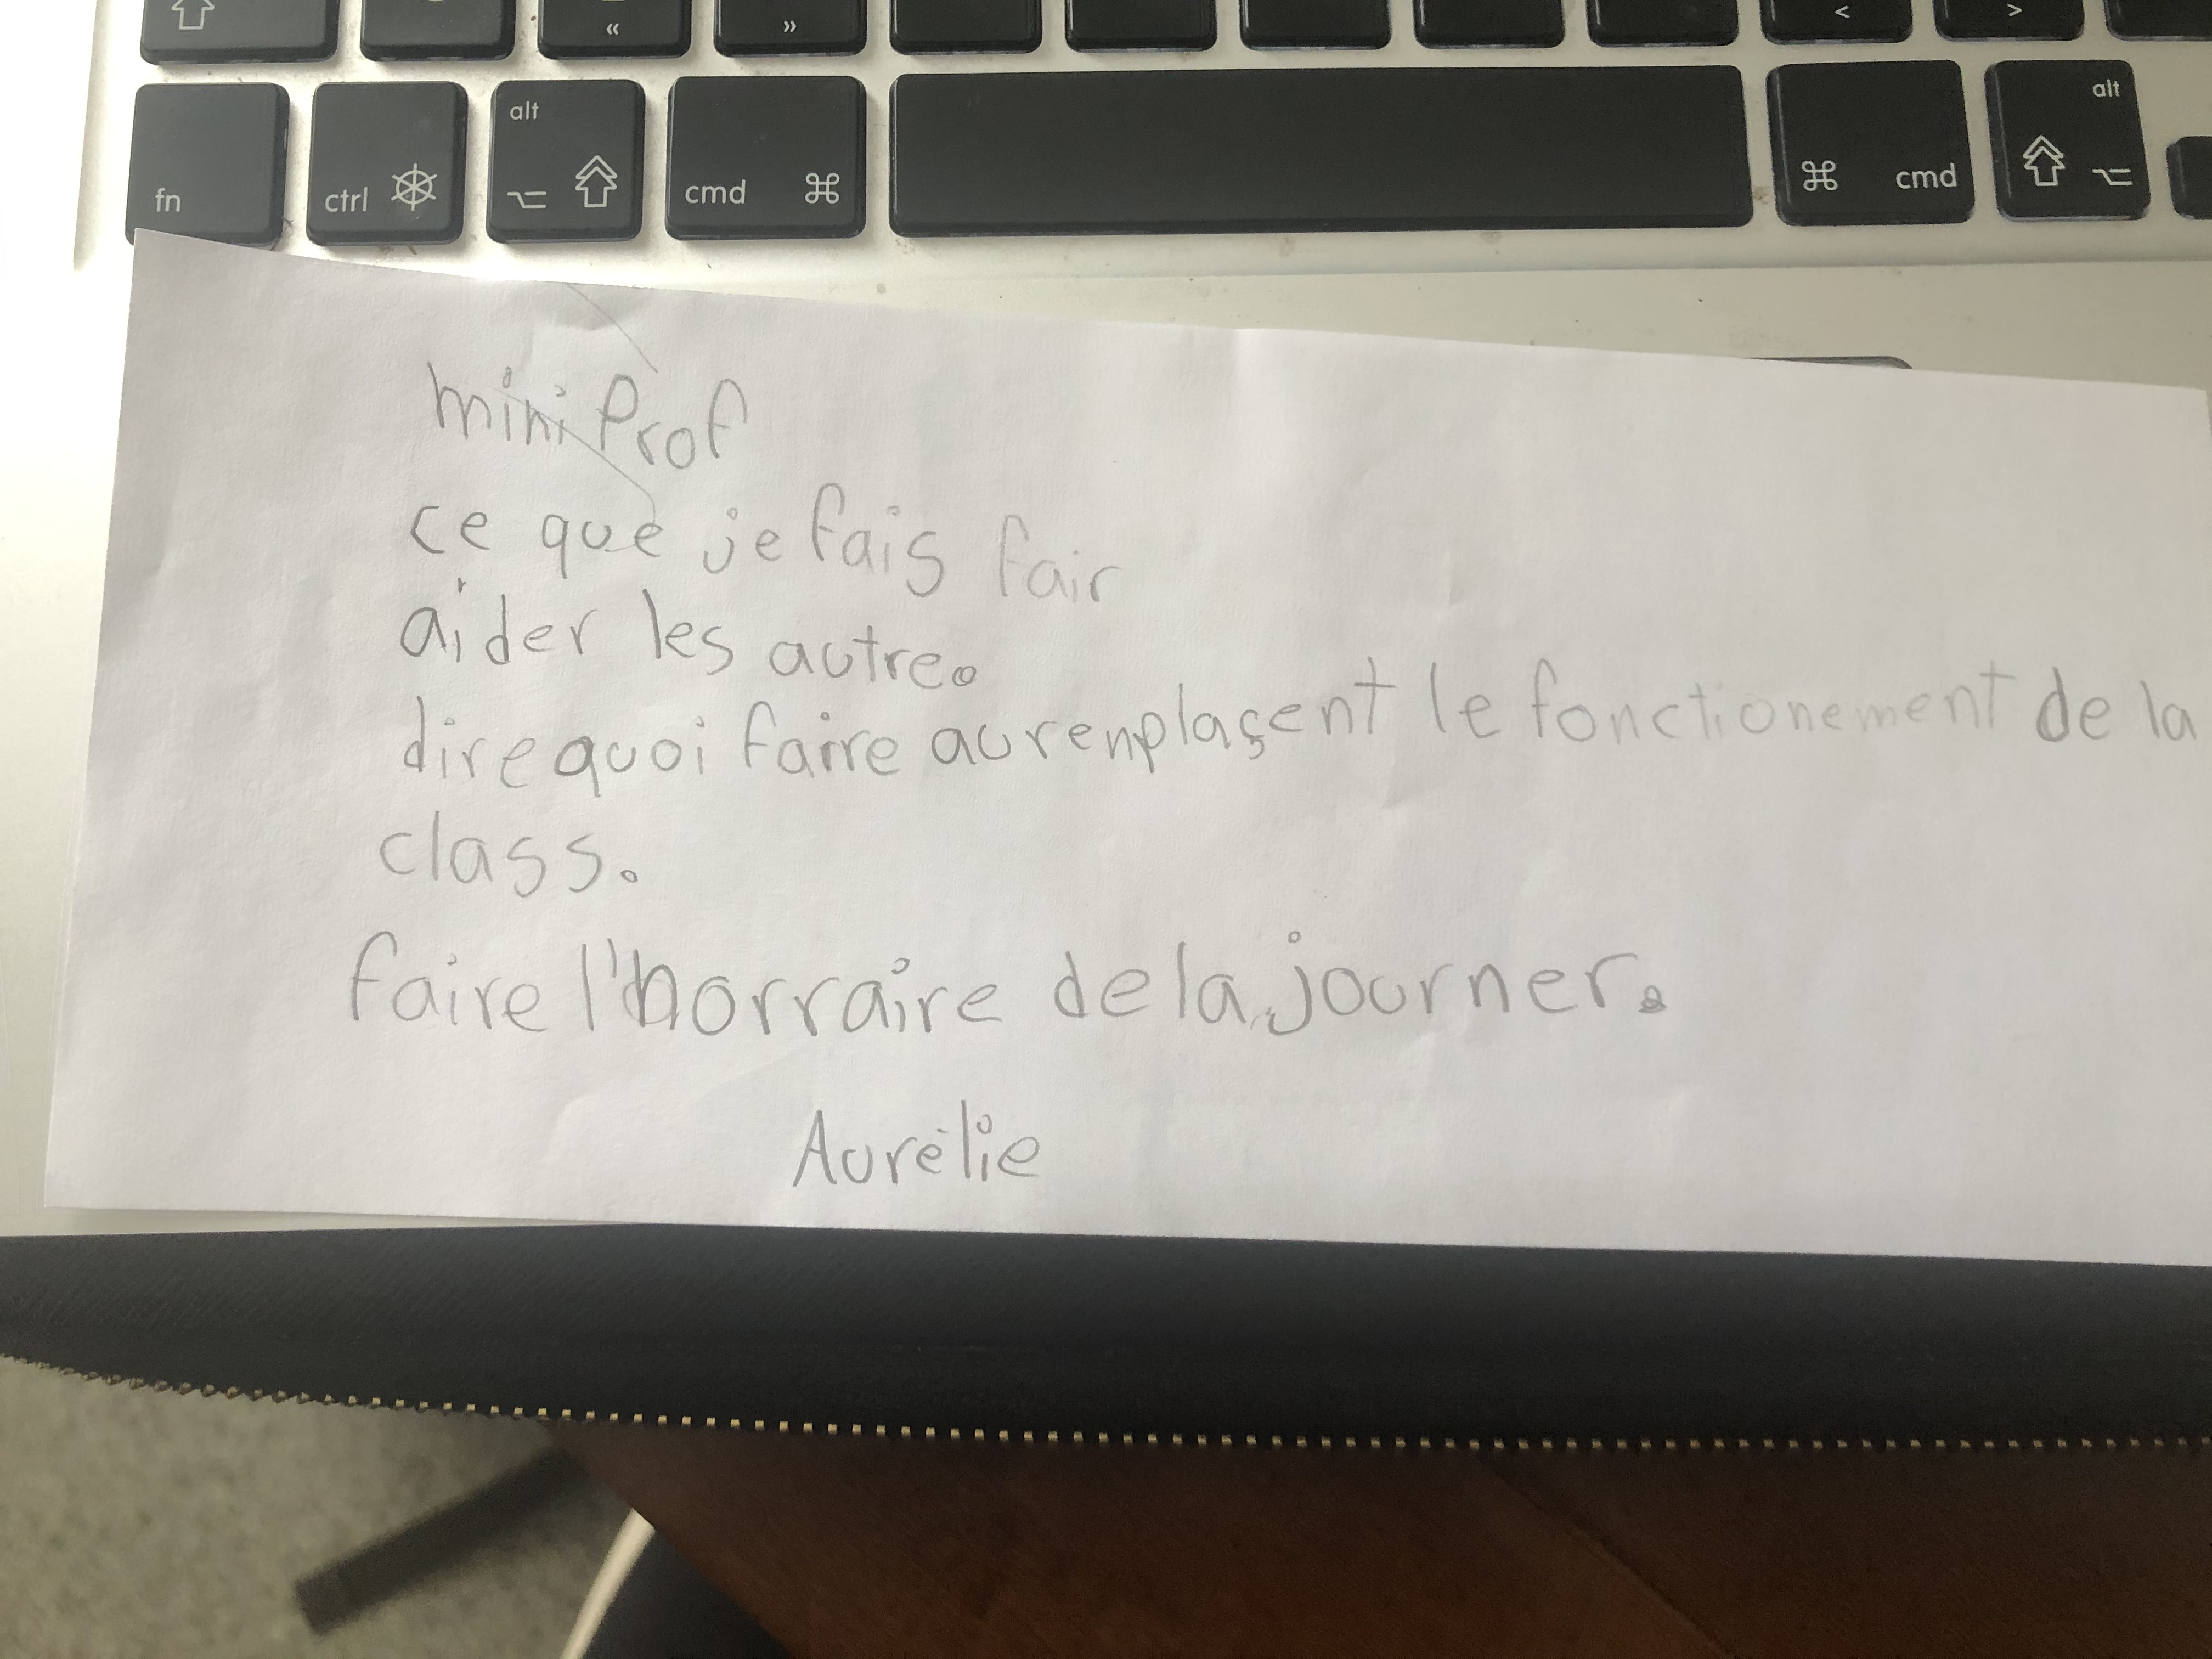 « » < >
fn ctrl alt ⌥ cmd ⌘ ⌘ cmd alt ⌥
mini Prof
ce que je fais fair
aider les autre.
dire quoi faire au renplaçent le fonctionement de la
class.
faire l'horraire de la journer.
Aurélie